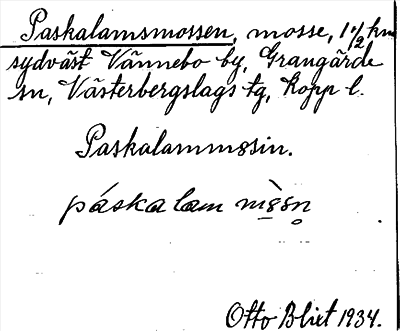 Paskalamsmossen, mosse, 1 1/2 km
sydväst Vännebo by, Grangärde
sn, Västerbergslags tg, Kopp l.
Paskalammɵsin.
páskalam mɵ̀sn̥
Otto Blixt 1934.